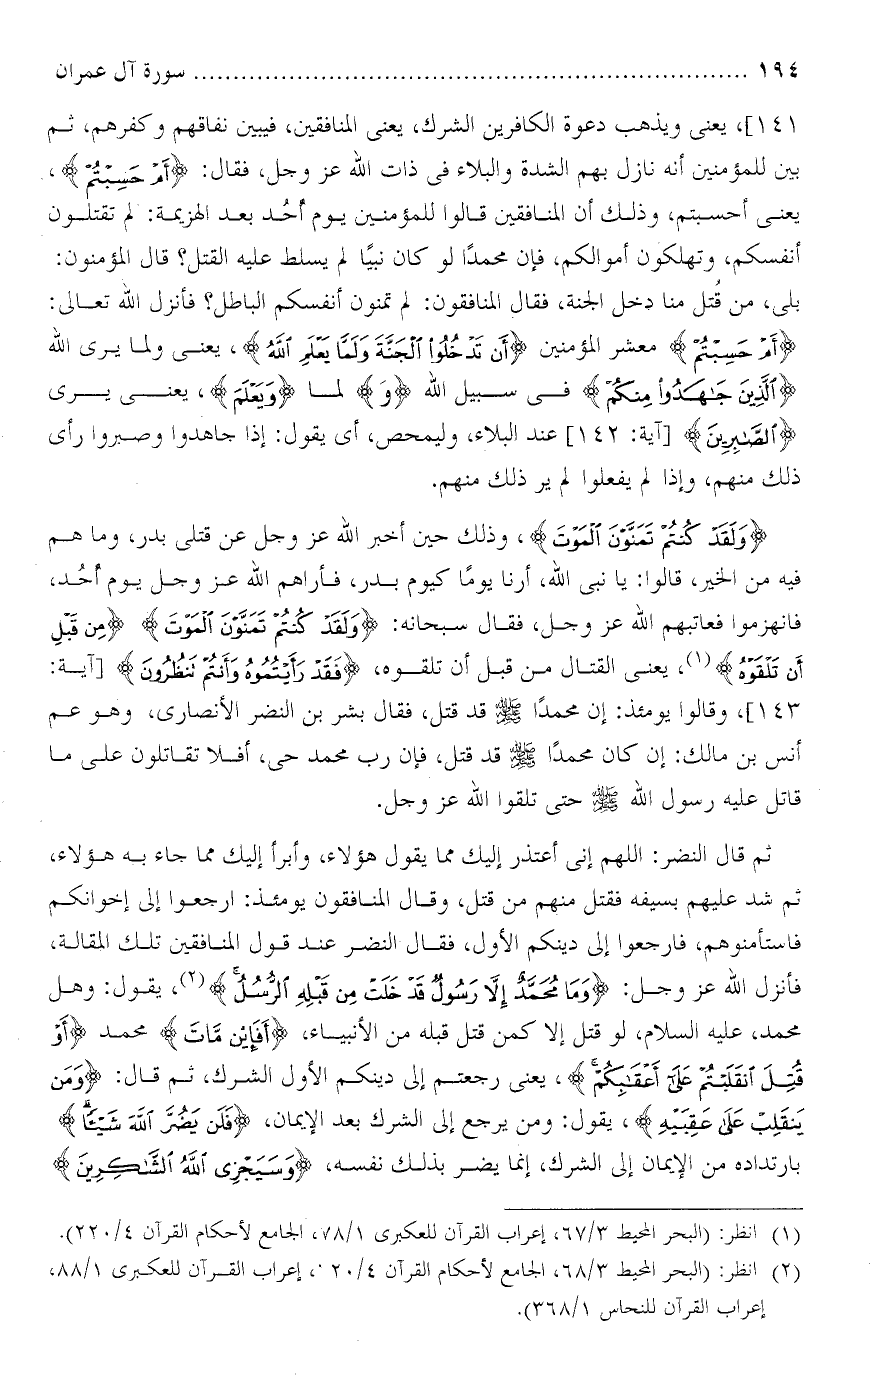 ١٩٤ ........................................................................ سورة آل عمران
١٤١]، يعنى ويذهب دعوة الكافرين الشرك، يعنى المنافقين، فيبين نفاقهم وكفرهم، ثم
بين للمؤمنين أنه نازل بهم الشدة والبلاء فى ذات الله عز وجل، فقال: ﴿أَمْ حَسِبْتُمْ﴾،
يعنى أحسبتم، وذلك أن المنافقين قالوا للمؤمنين يوم أُحُد بعد الهزيمة: لم تقتلون
أنفسكم، وتهلكون أموالكم، فإن محمدًا لو كان نبيًا لم يسلط عليه القتل؟ قال المؤمنون:
بلى، من قُتل منا دخل الجنة، فقال المنافقون: لم تمنون أنفسكم الباطل؟ فأنزل الله تعالى:
﴿أَمْ حَسِبْتُمْ﴾ معشر المؤمنين ﴿أَن تَدْخُلُواْ الْجَنَّةَ وَلَمَّا يَعْلَمِ اللَّهُ﴾، يعنى ولما يرى الله
﴿الَّذِينَ جَاهَدُواْ مِنكُمْ﴾ فى سبيل الله ﴿وَ﴾ لما ﴿وَيَعْلَمَ﴾، يعنى يرى
﴿الصَّابِرِينَ﴾ [آية: ١٤٢] عند البلاء، وليمحص، أى يقول: إذا جاهدوا وصبروا رأى
ذلك منهم، وإذا لم يفعلوا لم ير ذلك منهم.
﴿وَلَقَدْ كُنتُمْ تَمَنَّوْنَ الْمَوْتَ﴾، وذلك حين أخبر الله عز وجل عن قتلى بدر، وما هم
فيه من الخير، قالوا: يا نبى الله، أرنا يومًا كيوم بدر، فأراهم الله عز وجل يوم أُحُد،
فانهزموا فعاتبهم الله عز وجل، فقال سبحانه: ﴿وَلَقَدْ كُنتُمْ تَمَنَّوْنَ الْمَوْتَ﴾ ﴿مِن قَبْلِ
أَن تَلْقَوْهُ﴾(١)، يعنى القتال من قبل أن تلقوه، ﴿فَقَدْ رَأَيْتُمُوهُ وَأَنتُمْ نَنظُرُونَ﴾ [آية:
١٤٣]، وقالوا يومئذ: إن محمدًا ﷺ قد قتل، فقال بشر بن النضر الأنصارى، وهو عم
أنس بن مالك: إن كان محمدًا ﷺ قد قتل، فإن رب محمد حى، أفلا تقاتلون على ما
قاتل عليه رسول الله ﷺ حتى تلقوا الله عز وجل.
ثم قال النضر: اللهم إنى أعتذر إليك مما يقول هؤلاء، وأبرأ إليك مما جاء به هؤلاء،
ثم شد عليهم بسيفه فقتل منهم من قتل، وقال المنافقون يومئذ: ارجعوا إلى إخوانكم
فاستأمنوهم، فارجعوا إلى دينكم الأول، فقال النضر عند قول المنافقين تلك المقالة،
فأنزل الله عز وجل: ﴿وَمَا مُحَمَّدٌ إِلَّا رَسُولٌ قَدْ خَلَتْ مِن قَبْلِهِ الرُّسُلُ﴾(٢)، يقول: وهل
محمد، عليه السلام، لو قتل إلا كمن قتل قبله من الأنبياء، ﴿أَفَإِيْن مَّاتَ﴾ محمد ﴿أَوْ
قُتِلَ انقَلَبْتُمْ عَلَى أَعْقَابِكُمْ﴾، يعنى رجعتم إلى دينكم الأول الشرك، ثم قال: ﴿وَمَن
يَنقَلِبْ عَلَى عَقِبَيْهِ﴾، يقول: ومن يرجع إلى الشرك بعد الإيمان، ﴿فَلَن يَضُرَّ اللَّهَ شَيْئًا﴾
بارتداده من الإيمان إلى الشرك، إنما يضر بذلك نفسه، ﴿وَسَيَجْزِى اللَّهُ الشَّاكِرِينَ﴾
(١) انظر: (البحر المحيط ٦٧/٣، إعراب القرآن للعكبرى ٧٨/١، الجامع لأحكام القرآن ٢٢٠/٤).
(٢) انظر: (البحر المحيط ٦٨/٣، الجامع لأحكام القرآن إعراب القرآن للعكبرى ٨٨/١،
إعراب القرآن للنحاس ٣٦٨/١).